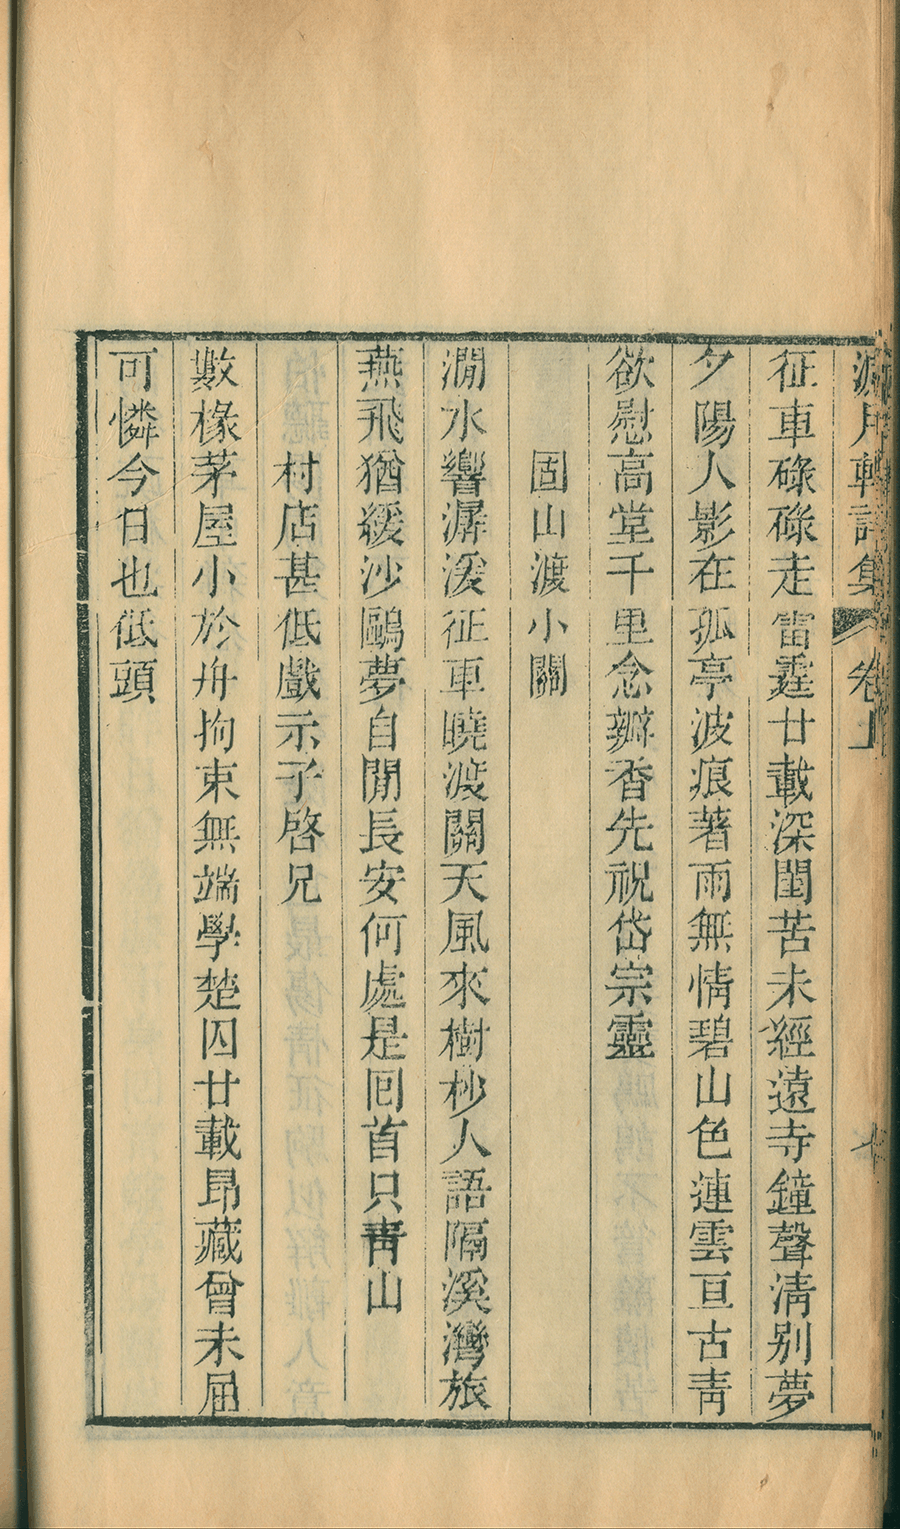 月軒詩集 卷上
征車碌碌走雷霆廿載深閨苦未經遠寺鐘聲淸別夢
夕陽人影在孤亭波痕著雨無情碧山色連雲亘古靑
欲慰高堂千里念瓣香先祝岱宗靈
固山渡小關
澗水響潺湲征車曉渡關天風來樹杪人語隔溪灣旅
燕飛猶緩沙鷗夢自閒長安何處是回首只靑山
村店甚低戲示子啓兄
數椽茅屋小於舟拘束無端學楚囚廿載昂藏曾未屈
可憐今日也低頭